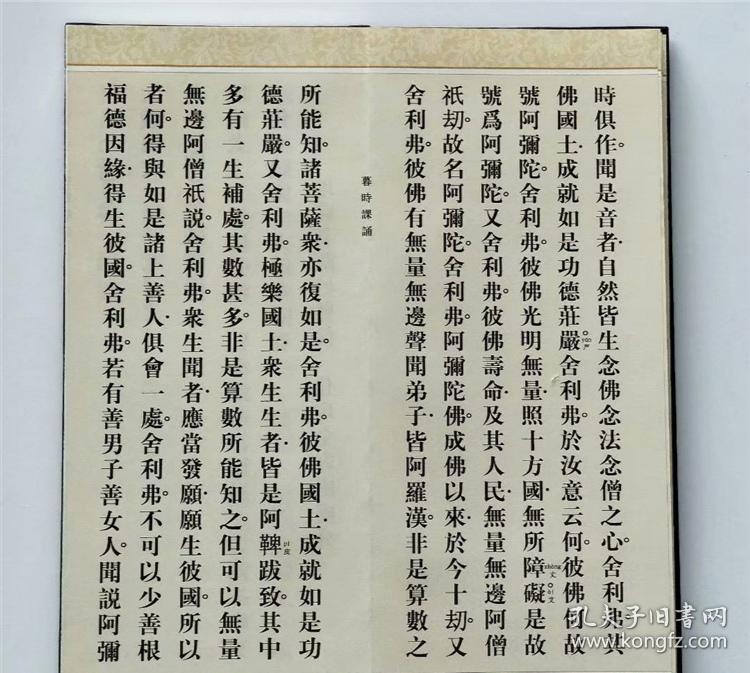 時俱作。聞是音者·自然皆生念佛念法念僧之心。舍利弗。其
佛國土·成就如是功德莊嚴。舍利弗。於汝意云何。彼佛何故
號阿彌陀。舍利弗。彼佛光明無量·照十方國·無所障礙。是故
號爲阿彌陀。又舍利弗。彼佛壽命·及其人民·無量無邊阿僧
祇劫。故名阿彌陀。舍利弗。阿彌陀佛。成佛以來·於今十劫。又
舍利弗。彼佛有無量無邊聲聞弟子·皆阿羅漢·非是算數之
暮時課誦
所能知。諸菩薩衆·亦復如是。舍利弗。彼佛國土·成就如是功
德莊嚴。又舍利弗。極樂國土·衆生生者·皆是阿鞞跋致。其中
多有一生補處。其數甚多·非是算數所能知之。但可以無量
無邊阿僧祇説。舍利弗。衆生聞者·應當發願·願生彼國。所以
者何。得與如是諸上善人·俱會一處。舍利弗。不可以少善根
福德因緣·得生彼國。舍利弗。若有善男子善女人。聞説阿彌
孔夫子旧书网
www.kongfz.com